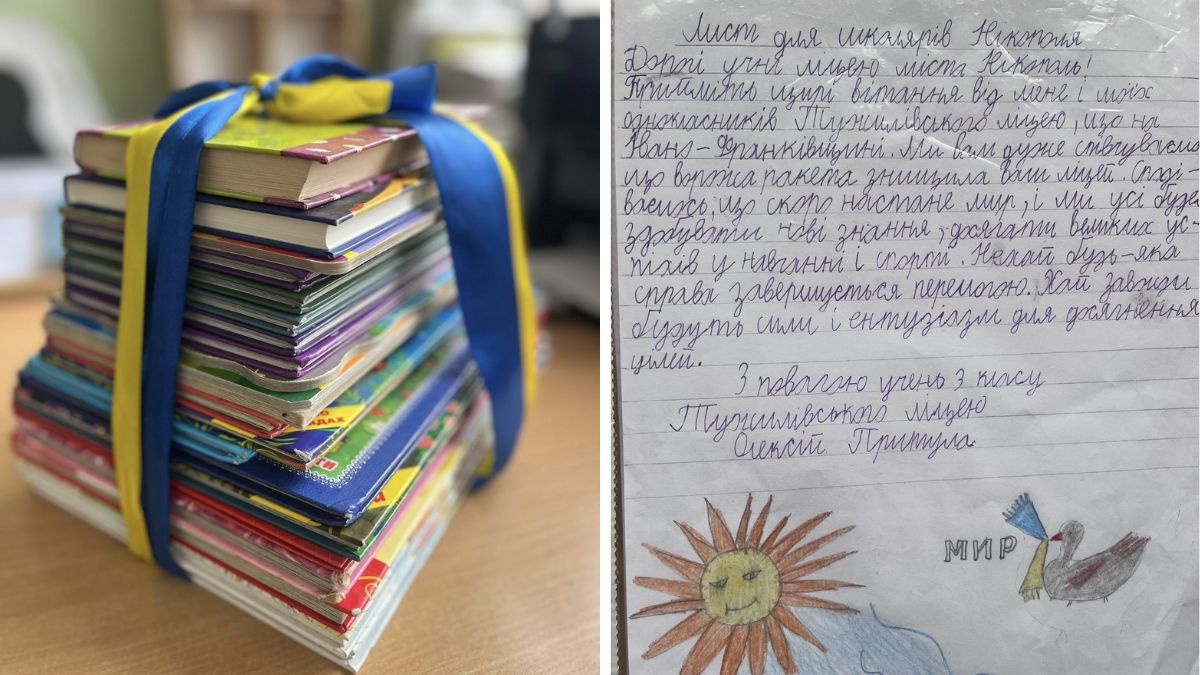 Лист для школярів Нікополя
Дорогі учні ліцею міста Нікополь!
Прийміть щирі вітання від мене і моїх
однокласників Тужилівського ліцею, що на
Івано-Франківщині. Ми вам дуже співчуваємо
що ворожа ракета знищила ваш ліцей. Споді-
ваємось, що скоро настане мир, і ми усі будемо
здобувати нові знання, досягати великих ус-
піхів у навчанні і спорті. Нехай будь-яка
справа завершується перемогою. Хай завжди
будуть сили і ентузіазм для досягнення
цілей.
З повагою учень 3 класу
Тужилівського ліцею
Олексій Притула
МИР